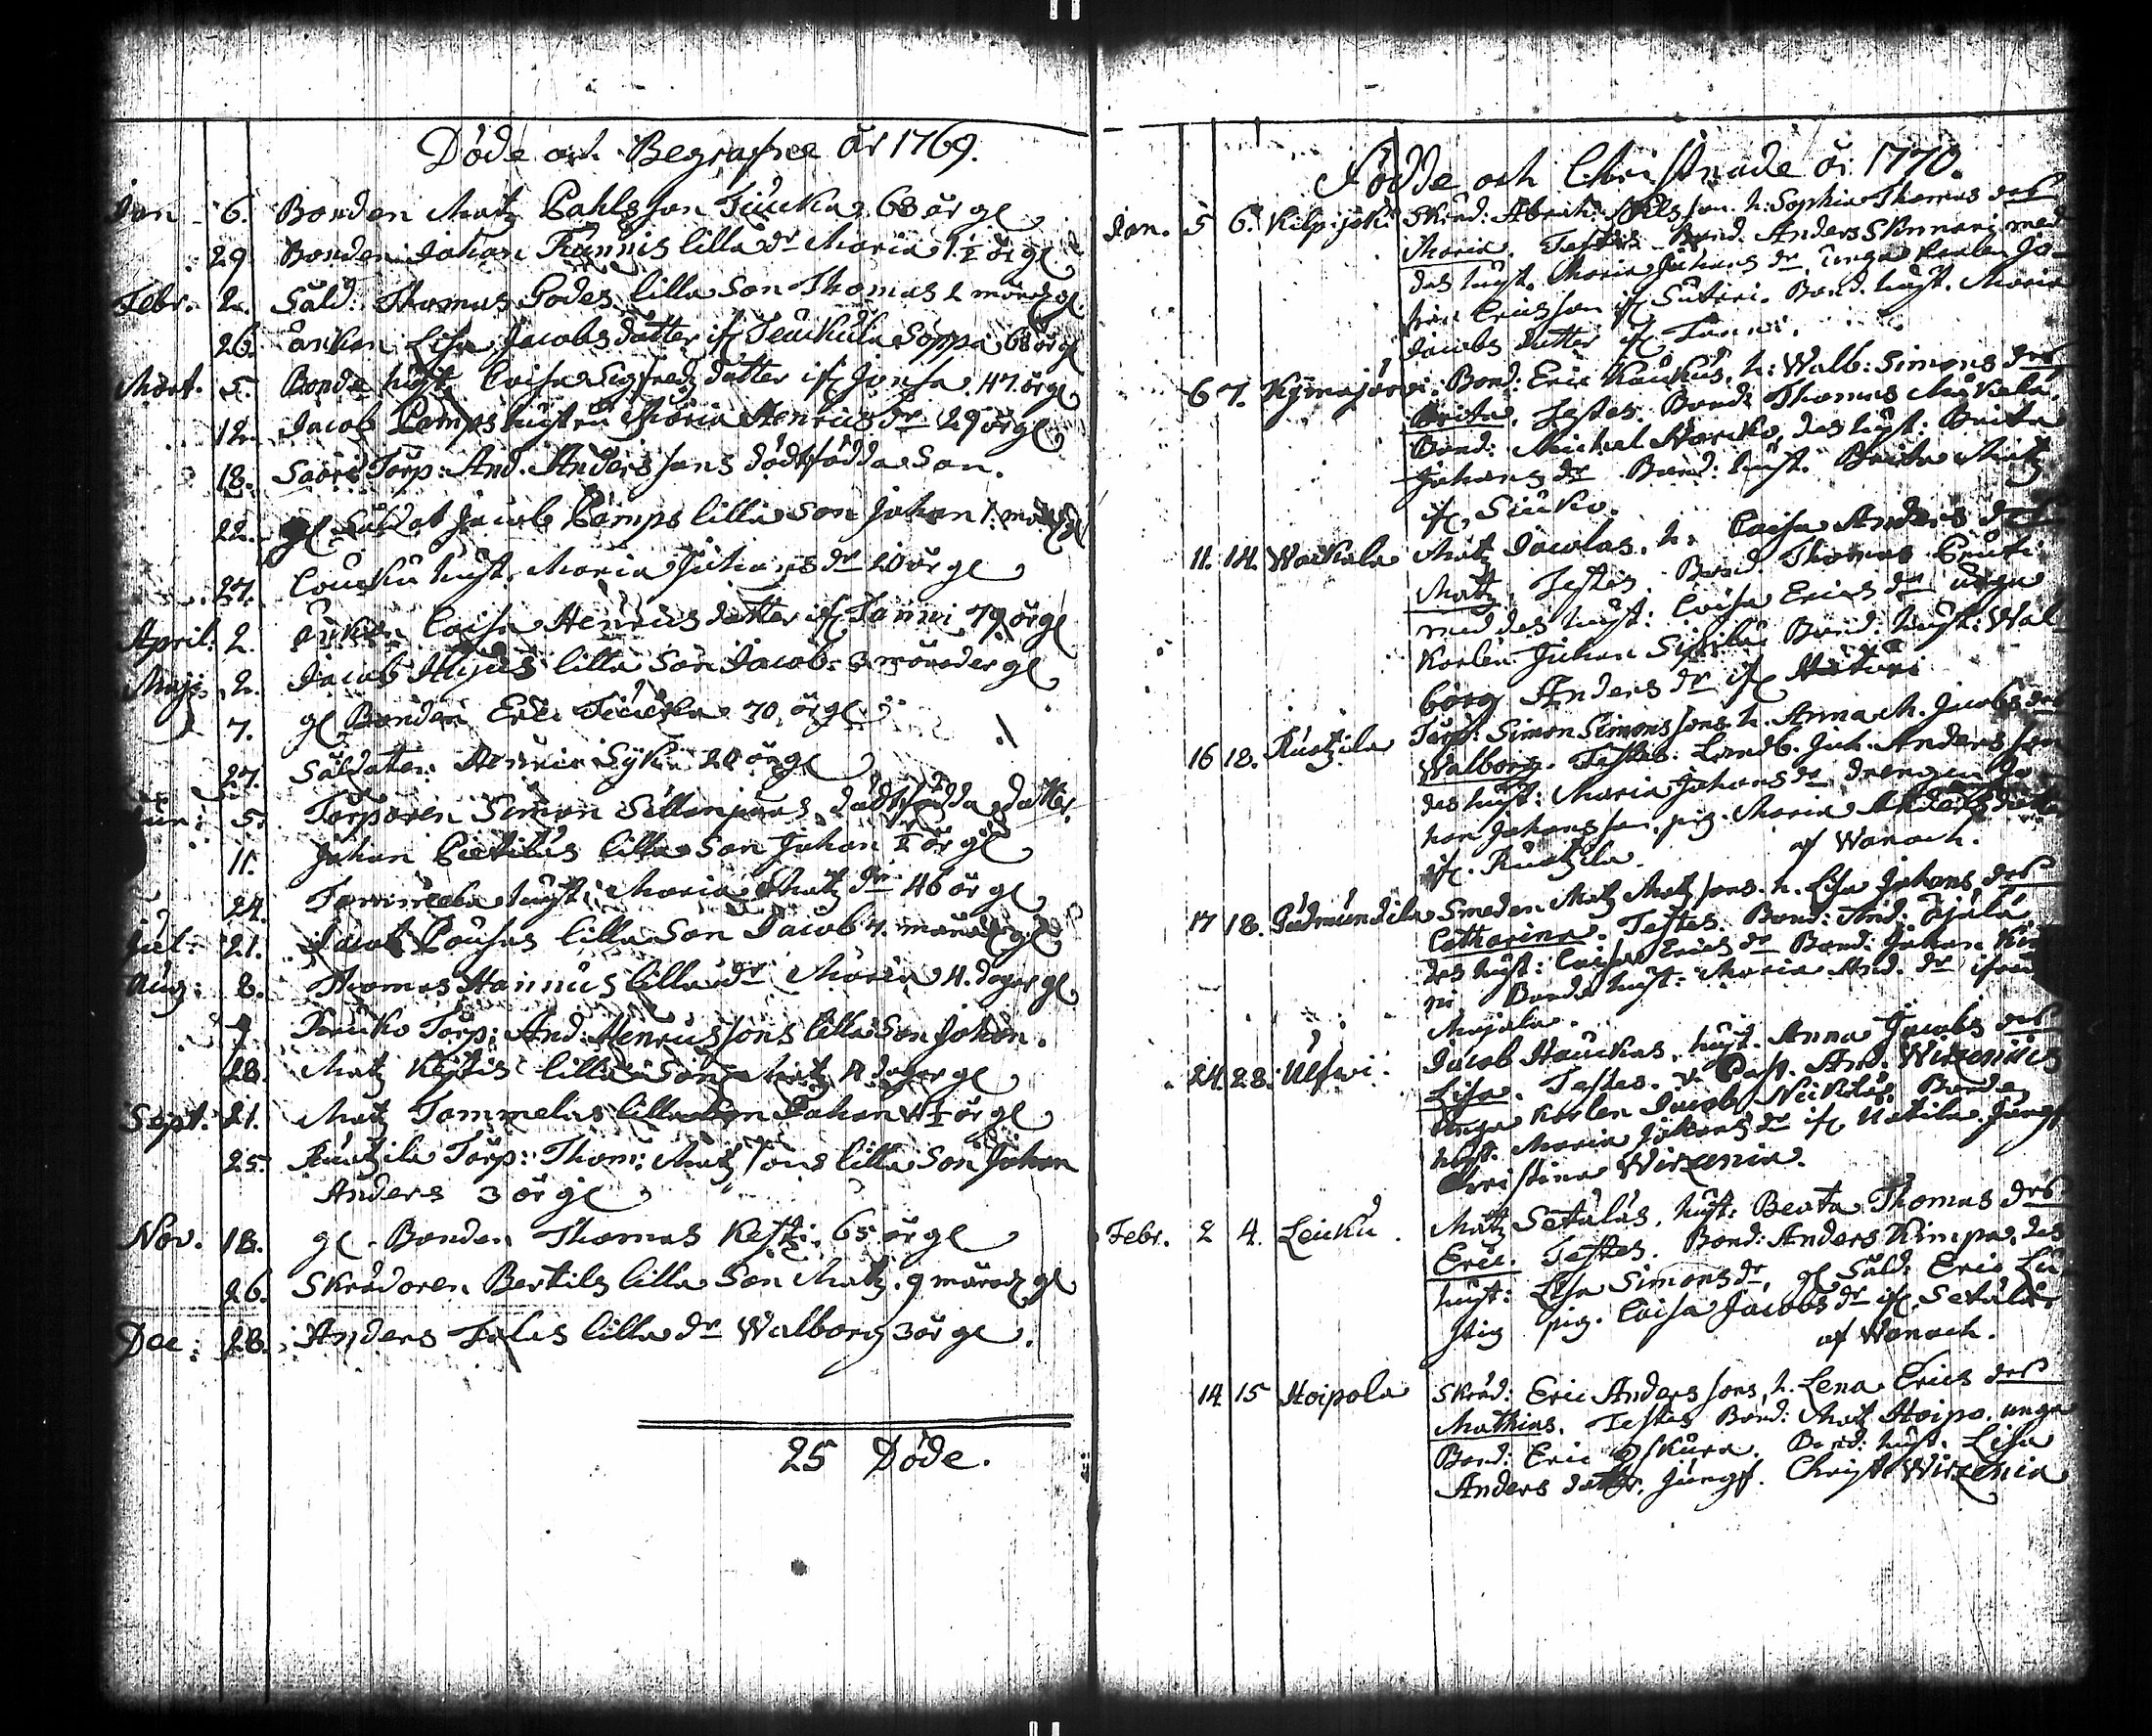 Döde och Begrafne år 1769.
Jan. 6. Bonden Matz Påhlsson Tiucka 68 år gl
29 Bonden Johan Runnis lilla dr Maria 1½ år gl
Febr. 2. Sold: Thomas Godes lilla Son Thomas 2 månad gl
26. änkan Lisa Jacobs dotter if Seuckula Soppa 68 år gl
Mart. 5. Bonde hust Caisa Sigfreds dotter if Jonsa 47 år gl
12. Jacob Lamps hustru Maria Henrics dr 29 år gl
18. Saari Torp: And. Anderssons dödfödda Son.
22. gl Soldat Jacob Lamps lilla Son Johan 7. månad gl
27. Loucku hust. Maria Johans dr 20 år gl
April: 2. änkan Caisa Henrics dotter if Tanni 79 år gl
Maji. 2. Jacob Alijus lilla Son Jacob 3 månader gl
7. gl Bonden Eric 70 år gl
27. Soldaten Henric Syki 28 år gl
Jun: 5. Torparen Simon Sillanpääs dödfödda dotter.
11. Johan Pietilas lilla Son Johan ½ år gl
24. hust: Maria Matz dr 46 år gl
Jul: 21. Jacob Pousas lilla Son Jacob 7. månad gl
Aug: 8. Thomas Hannus lilla dr Maria 4. dagar gl.
9 Torp: And. Henricssons lilla Son Johan.
28. Matz Kestis lilla Son Matz dagar gl
Sept: 21. Matz Tommelas lilla Son Johan 4½ år gl
25. Ruatzila Torp: Thom: Matzsons lilla Son Johan
Anders 3 år gl
Nov. 18. gl. Bonden Thomas Kesti 65 år gl
26. Skrädaren Bertils lilla Son Matz. 9 månad gl
Dec: 28. Anders Talas lilla dr Walborg 3 år gl.
25 Döde.
Födde och Christnade år 1770.
Jan. 5 6. Kilpijoki Skräd: Abrah: Nilsson. h: Sophia Thomas dr
Maria. Testes Bond. Anders Skinnari med
des hust. Maria Johans dr. unga Karlen Jo-
han Ericsson if Suteri. Bond. hust. Maria
Jacobs dotter if Tanni.
6 7. Kymajärvi. Bond: Eric Kaukus, h: Walb: Simons dr
Brita. Testes. Bond: Thomas Mäkelä,
Bond: Michel des hust: Brita
Johans dr Bond: hust. Brita Matz
if. Siuko.
11. 14. Wackala Matz Jacolas. h. Caisa Anders dr
Matz. Testes. Bond Thomas
med des hust: Caisa Erics dr unga
Karlen Johan Bond: hust: Wal-
borg Anders dr if
16 18. Ruatzila Torp: Simon Simonssons h. Anna M. Jacobs dr
Walborg. Testes: Landb. Joh. Andersson
des hust: Maria Johans dr drengen Jo-
han Johansson. pig. Maria Anders dotter
if. Ruatzila. af Wanach.
17 18. Gudmundila Smeden Matz Matzsons. h. Lisa Johans dr
Catharina. Testes. Bond: And: Äjälä
des hust: Caisa Erics dr Bond: Johan
Bonde hust: Maria And. dr ifrån
Majala.
24 28. Ulfvi. Jacob Hauckas, hust. Anna Jacobs dr
Lisa. Testes. v. Past. And. Wirzenius
unga Karlen Jacob Bonde
hust. Maria Johans dr if Uotila. Jungf
Christina Wirzenia.
Febr. 2 4. Leuku. Matz Setalas, hust. Beata Thomas dr
Eric. Testes. Bond: Anders Kimpa, des
hust: Lisa Simons dr, gl Sold: Eric Lu-
stig pig. Caisa Jacobs dr if Setalä
af Wanach.
14 15 Hoipola Skräd: Eric Anderssons, h. Lena Erics dr
Mathias. Testes Bond: Matz Hoipo. unga
Bond: Eric Bond: hust. Lisa
Anders dotter. jungf. Christ. Wirzenia